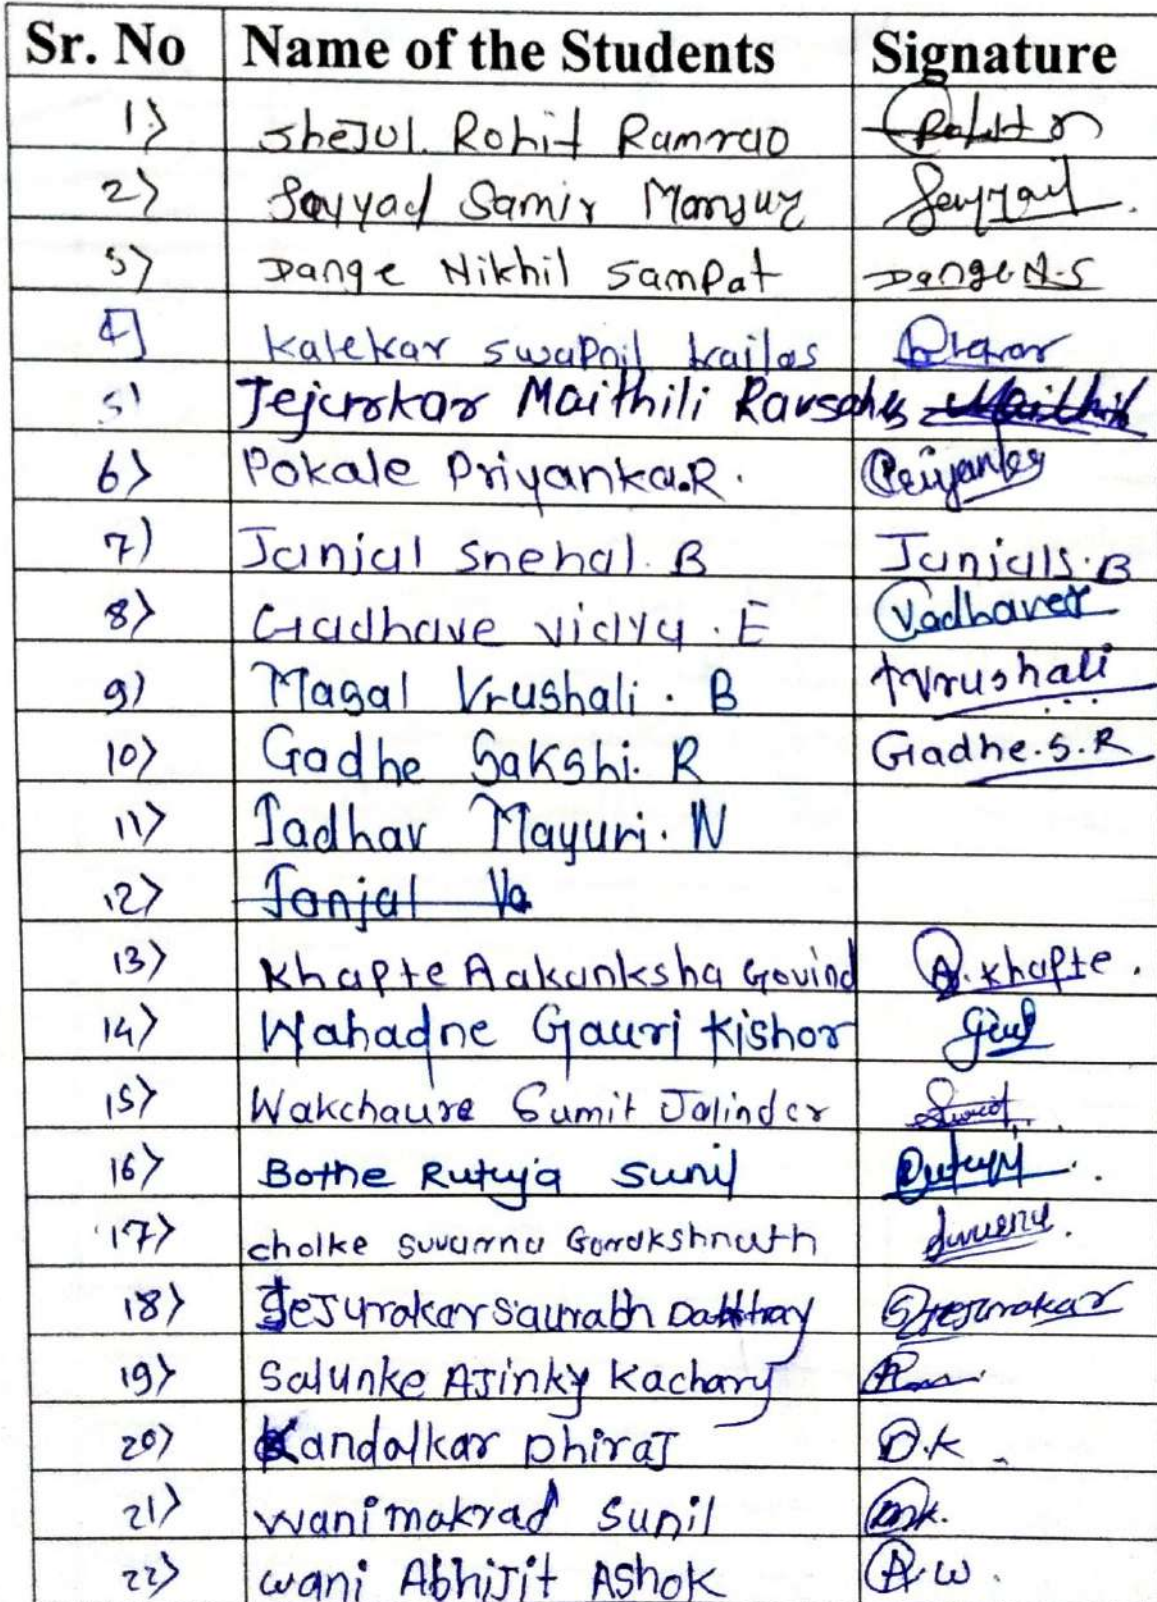 Sr. No Name of the Students Signature
1) Shejul Rohit Ramrao
2) Sayyad Samir Mansur Sayyad.
3) Dange Nikhil Sampat Dange N.S
4] Kalekar Swapnil Kailas
5) Jejurkar Maithili Ravsaheb Maithili
6) Pokale Priyanka.R. Priyanka
7) Janjal Snehal. B Janjal S.B
8) Gadhave vidya. E
9) Magal Vrushali. B Vrushali
10) Gadhe Sakshi. R Gadhe.S.R
11) Jadhav Mayuri. N
12) Janjal Va
13) Khapte Aakanksha Govind A.Khapte.
14) Wahadne Gauri Kishor
15) Wakchaure Sumit Jalinder
16) Bothe Rutuja Sunil
17) cholke suvarna Gorakshnath
18) Jejurakar saurabh Dattray S Jejurakar
19) Salunke AJinky Kacharu
20) Kandalkar DhiraJ D.K
21) wani makrad Sunil
22) wani AbhiJit AShok A.W.